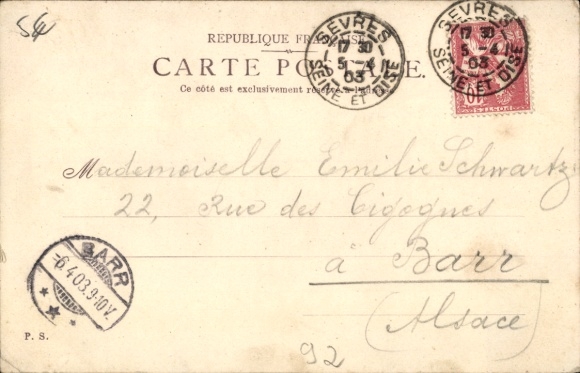 54
REPUBLIQUE FRANÇAISE
CARTE POSTALE.
Ce côté est exclusivement réservé à l'adresse
SEVRES
17 30
5 -4
03
SEINE ET OISE
SEVRES
17 30
5 -4
03
SEINE ET OISE
10
POSTES
Mademoiselle Emilie Schwartz
22, Rue des Cigognes
à Barr
(Alsace)
BARR
-6.4.03.9-10V.
P. S.
92